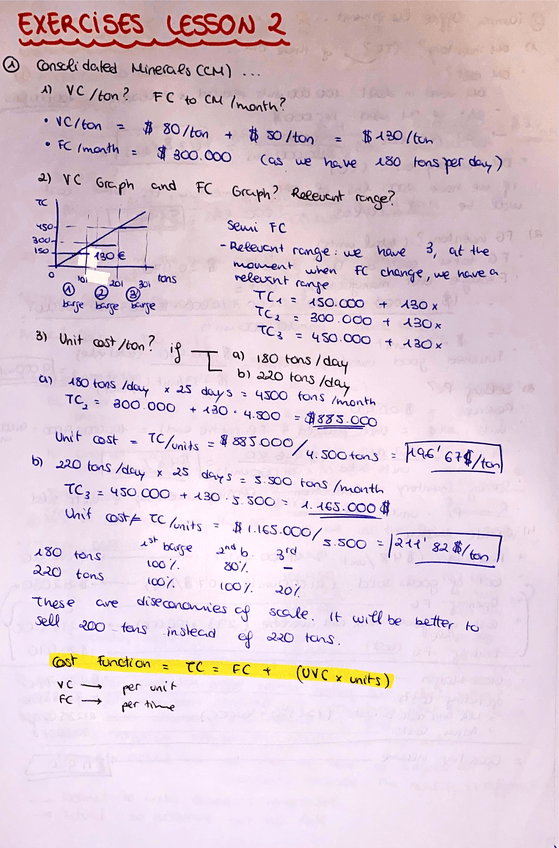 EXERCISES LESSON 2
1 Consolidated Minerals (CM) ...
1) VC/ton? FC to CM/month?
• VC/ton = $ 80/ton + $ 50/ton = $ 130/ton
• FC/month = $ 300.000 (as we have 180 tons per day)
2) VC Graph and FC Graph? Relevant range?
TC
450
300
150
130 €
0 101 201 301 tons
1 2 3
barge barge barge
Semi FC
- Relevant range: we have 3, at the
moment when FC change, we have a
relevant range
TC1 = 150.000 + 130x
TC2 = 300.000 + 130x
TC3 = 450.000 + 130x
3) Unit cost/ton? if
a) 180 tons/day
b) 220 tons/day
a) 180 tons/day x 25 days = 4500 tons/month
TC2 = 300.000 + 130 · 4.500 = $885.000
Unit cost = TC/units = $885.000/4.500 tons = 196'67$/ton
b) 220 tons/day x 25 days = 5.500 tons/month
TC3 = 450.000 + 130 · 5.500 = 1.165.000 $
Unit cost = TC/units = $1.165.000/5.500 = 211'82 $/ton
1st barge 2nd b. 3rd
180 tons 100% 80% —
220 tons 100% 100% 20%
These are diseconomies of scale. It will be better to
sell 200 tons instead of 220 tons.
Cost Function = TC = FC + (UVC x units)
VC → per unit
FC → per time